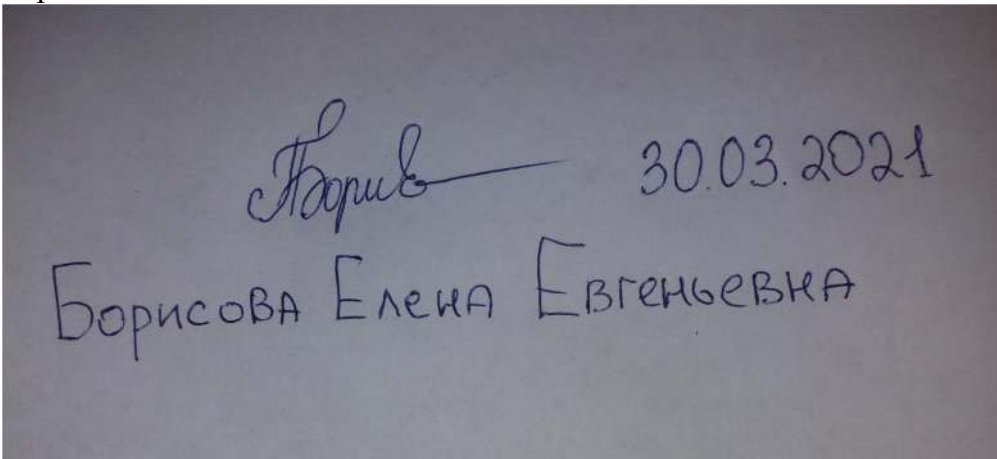 30.03.2021
Борисова Елена Евгеньевна